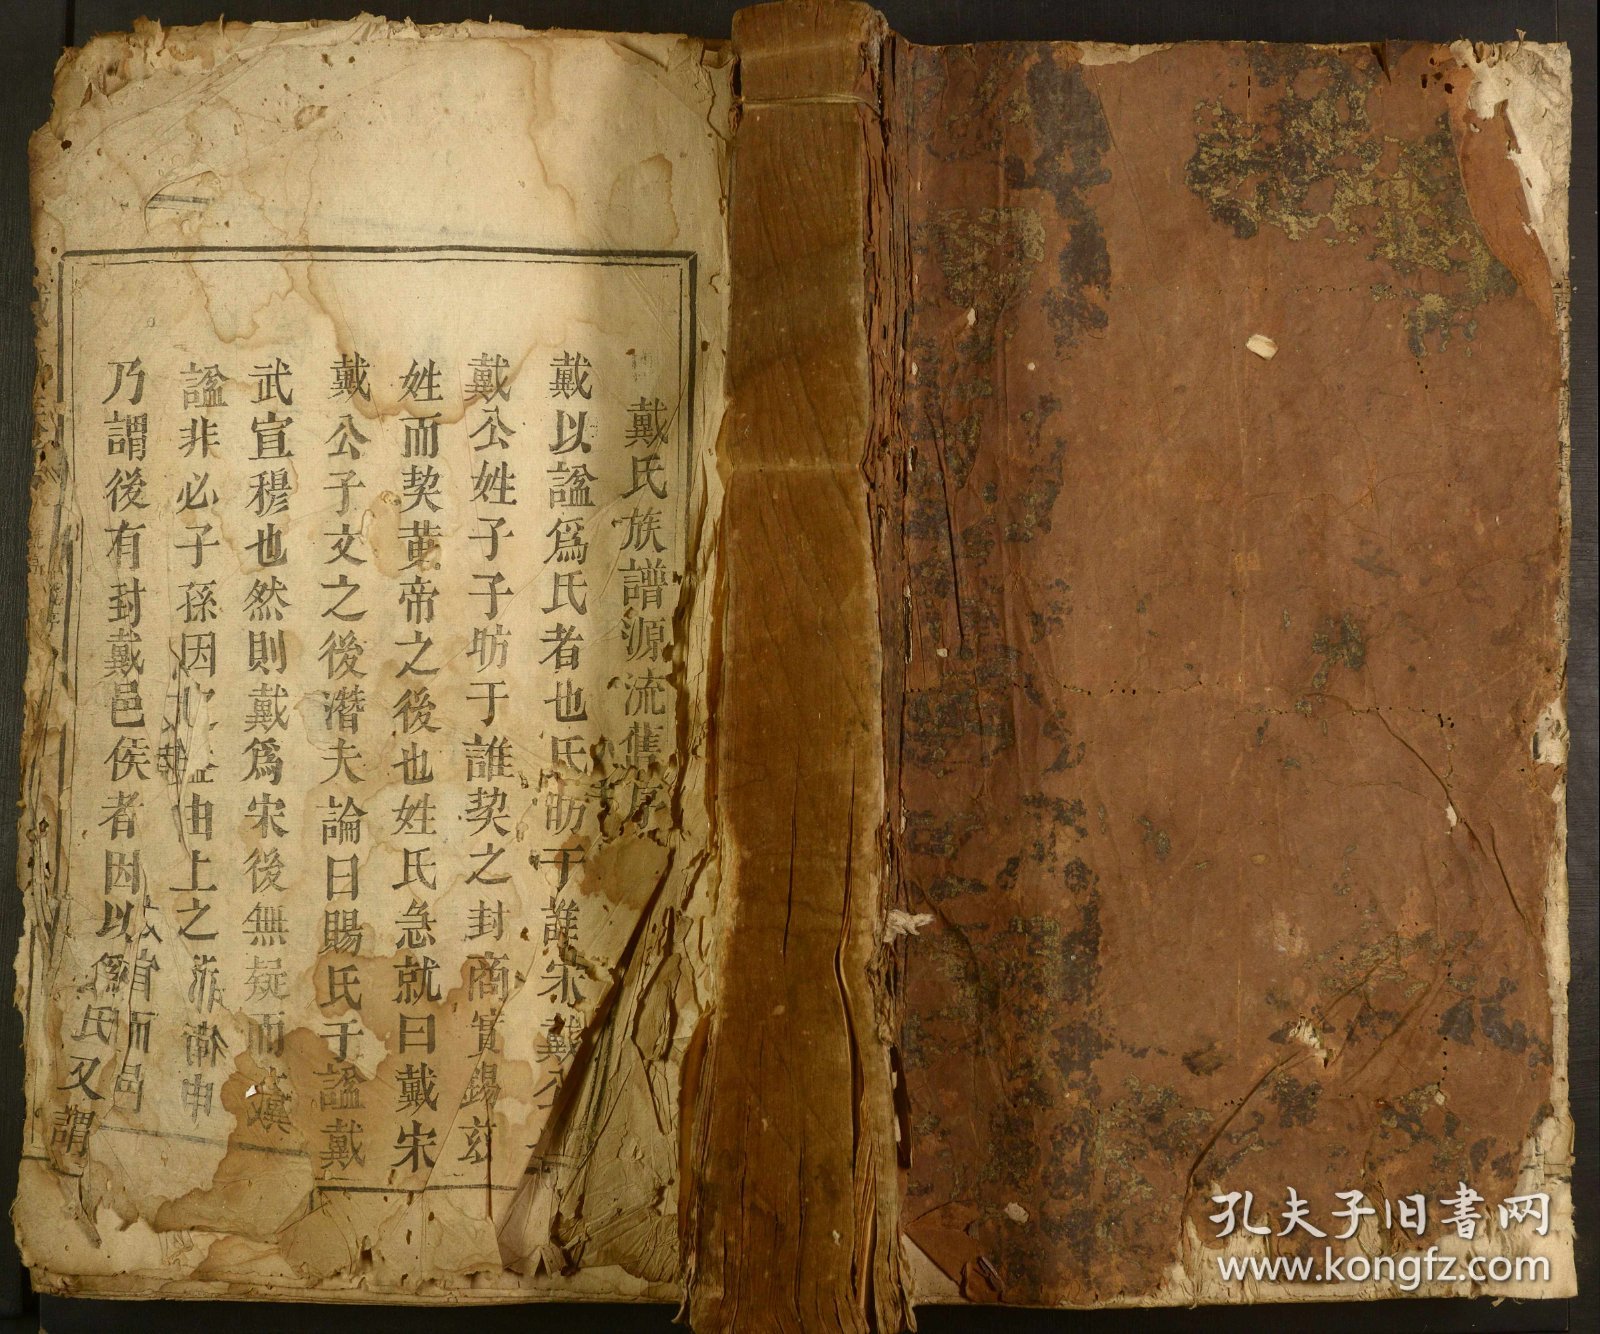 戴氏族譜源流舊序
戴以諡爲氏者也氏昉于誰宋戴公
戴公姓子子昉于誰契之封商實錫玆
姓而契黄帝之後也姓氏急就曰戴宋
戴公子文之後潛夫論曰賜氏于諡戴
武宣穆也然則戴爲宋後無疑而
諡非必子孫因由上之
乃謂後有封戴邑侯者因以爲氏又謂
孔夫子旧書网
www.kongfz.com